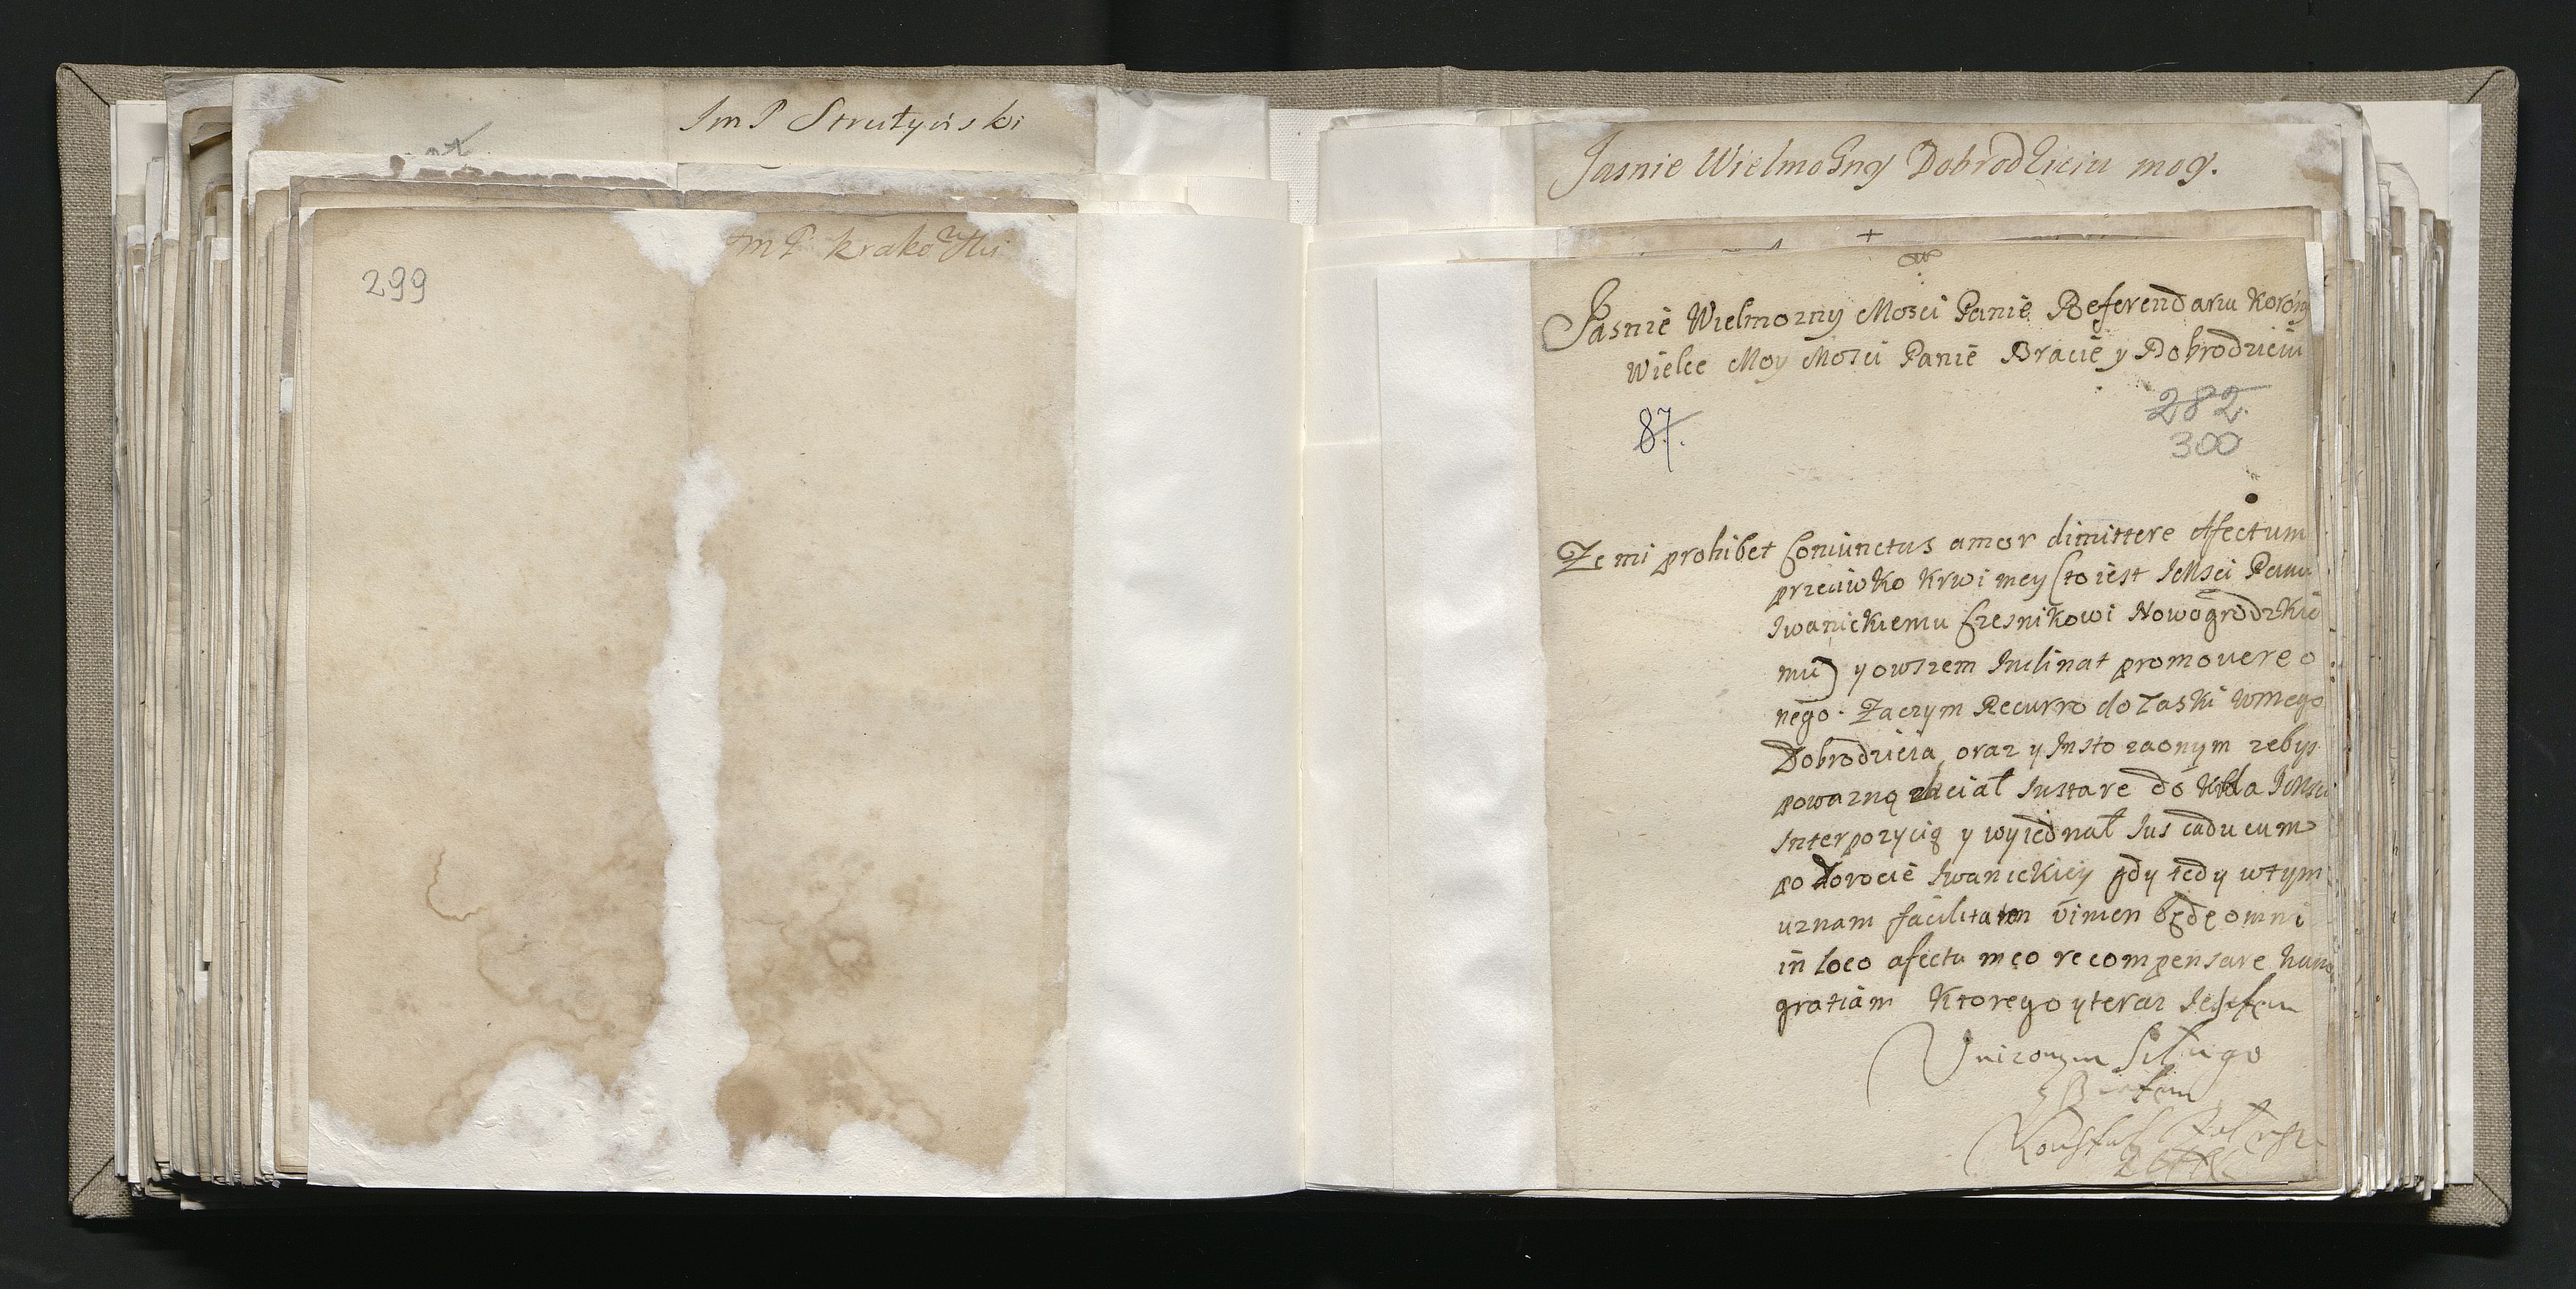 ImP Strutyński
ImP krako
299
Jasnie Wielmożny Dobrodzieiu moy.
Jasnie Wielmozny Mosci Panie Referendariu Koron
Wielce Moy Mosci Panie Bracie y Dobrodzieiu
87.
282.
300
Ze mi prohibet Coniunctus amor dimittere Afectum
przeciwko Krwi mey (to iest IeMsci Panu
Iwanickiemu Czesnikowi Nowogrodzkie
mu) y owszem Inclinat promouere o
nego. Zaczym Recurro do Łaski Wmego
Dobrodzieia, oraz y Insto zaonym zebys
powazną chciał Instare do Krla IeMsci
Interpozycią y wyiednał Ius caducum
po dorocie Iwanickiey gdy tedy wtym
uznam facilitatem vimen będę omni
in loco afectu meo recompensare hanc
gratiam Ktorego y teraz Iestem
Unizonym Sługo
y Bratem